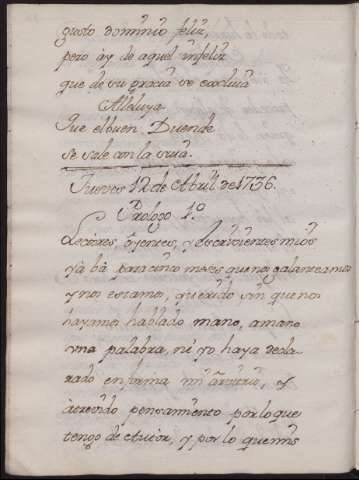 gusto dominio feliz,
pero ay de aquel infeliz
que de su gracia se excluia
Alleluya.
Que el buen Duende
se sale con la suia.
Jueves 12 de Abril de 1736.
Prologo 1º
Lectores, oyentes, y escrivientes mios
ya bà para cinco meses que nos galanteamos
y nos estamos, querido sin que nos
hayamos hablado mano, a mano
una palabra, ni yo haya decla-
rado en forma mi
atrevido pensamiento por lo que
tengo de Autor, y por lo que mis